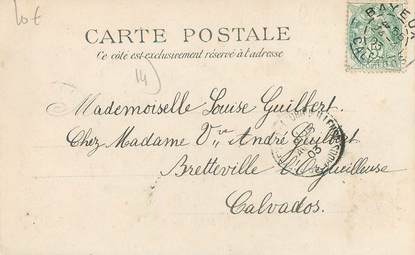 10 €
BAYEUX
CARTE POSTALE
CALVADOS
Ce côté est exclusivement réservé à l'adresse
14)
Mademoiselle Louise Guilbert.
Chez Madame Vve André Guilbert
03
Bretteville l'Orgueilleuse
Calvados.